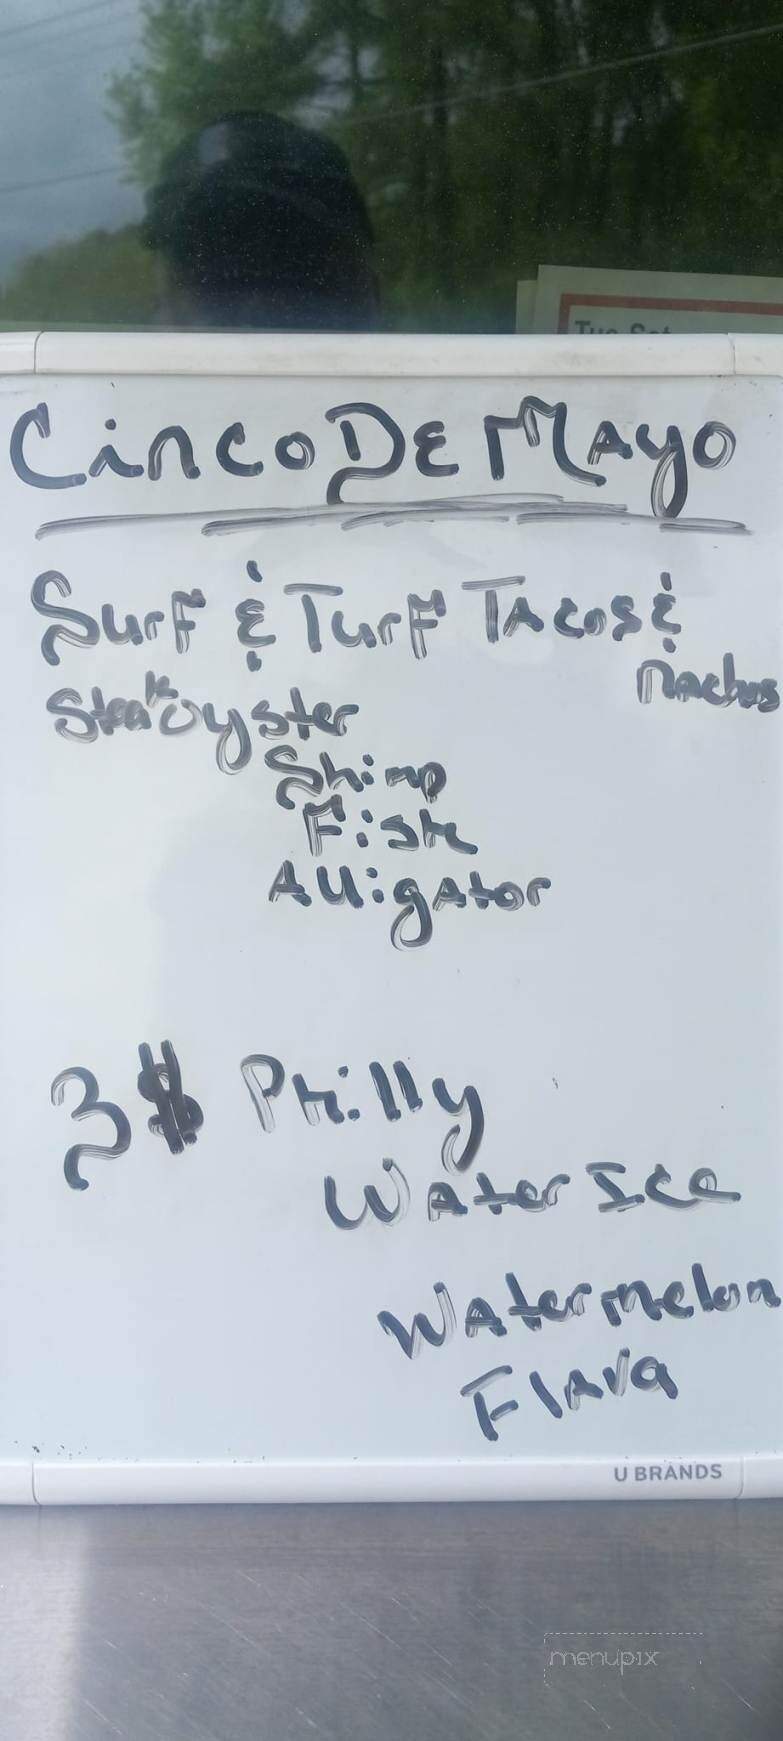 Tue-Sat
Cinco De Mayo
Surf & Turf Tacos &
Nachos
Steak Oyster
Shimp
Fish
Alligator
3$ Philly
Water Ice
Watermelon
Flava
U BRANDS
menupix